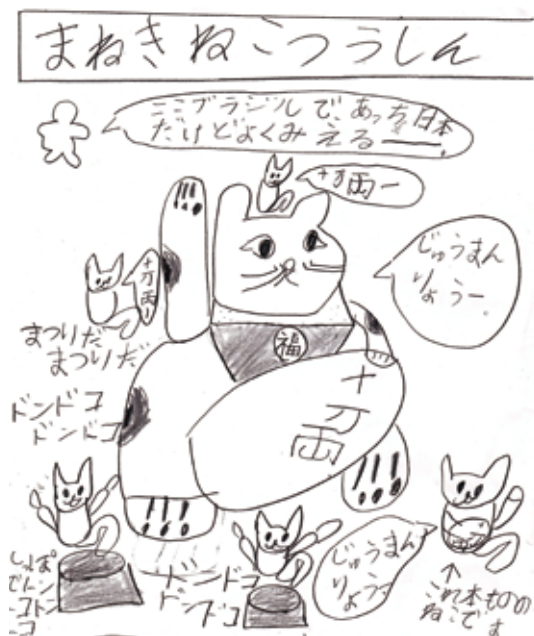 まねきねこつうしん
ここブラジルで、あっち日本
だけどよくみえるー
十万両ー
じゅうまん
りょうー
十万両ー
まつりだ
まつりだ
ドンドコ
ドンドコ
福
十万両
しっぽ
でトン
コトン
コ
ドンドコ
ドンドコ
じゅうまん
りょうー
↑
これ本ものの
ねこです